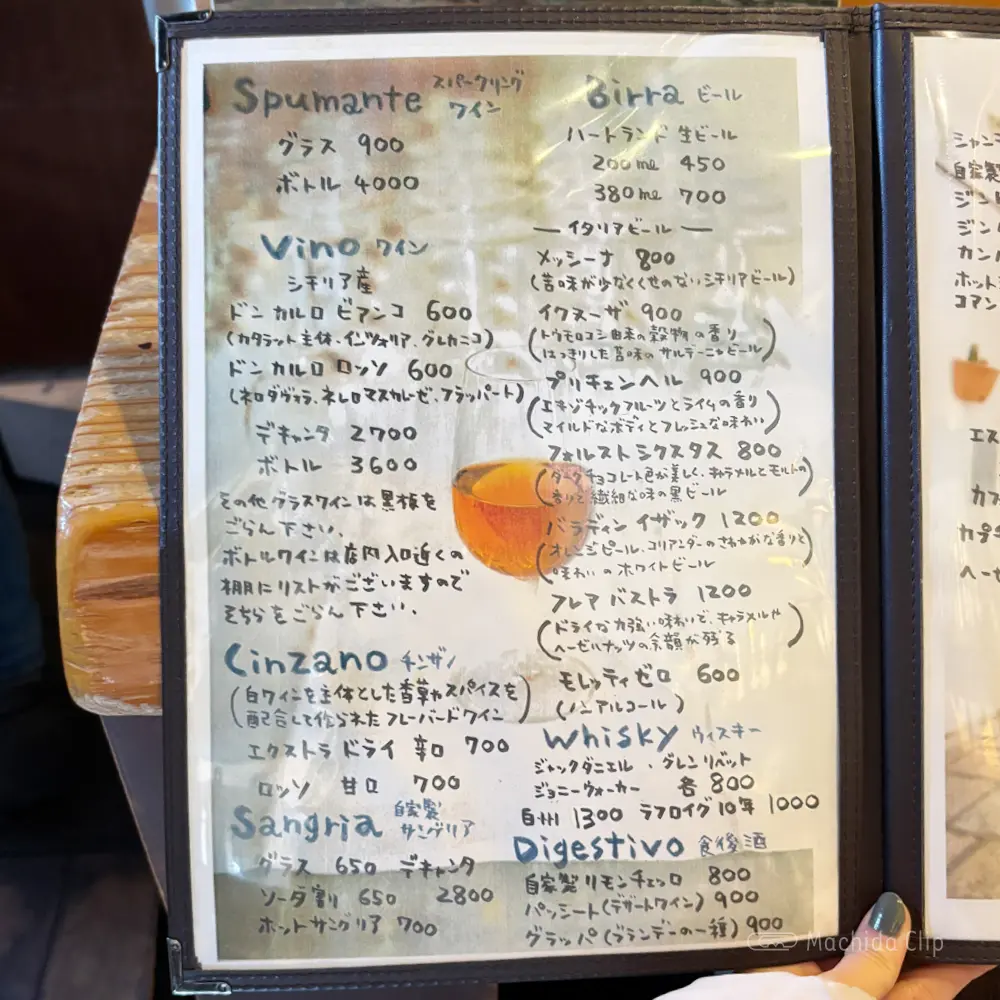 Spumante スパークリング
ワイン
グラス 900
ボトル 4000
Vino ワイン
シチリア産
ドン カルロ ビアンコ 600
(カタラット主体、インツォリア、グレカニコ)
ドン カルロ ロッソ 600
(ネロダヴォラ、ネレロマスカレーゼ、フラッパート)
デキャンタ 2700
ボトル 3600
その他グラスワインは黒板を
ごらん下さい。
ボトルワインは店内入口近くの
棚にリストがございますので
そちらをごらん下さい。
Cinzano チンザノ
(白ワインを主体とした香草やスパイスを
配合して作られたフレーバードワイン)
エクストラ ドライ 辛口 700
ロッソ 甘口 700
Sangria 自家製
サングリア
グラス 650 デキャンタ
ソーダ割り 650 2800
ホットサングリア 700
Birra ビール
ハートランド 生ビール
200ml 450
380ml 700
— イタリアビール —
メッシーナ 800
(苦味が少なくくせのないシチリアビール)
イクヌーザ 900
(トウモロコシ由来の穀物の香り
はっきりした苦味のサルデーニャビール)
プリチェンヘル 900
(エキゾチックフルーツとライムの香り
マイルドなボディとフレッシュな味わい)
フォルストシクスタス 800
(ダークチョコレート色が美しく、キャラメルとモルトの
香りで繊細な味の黒ビール
バラディン イザック 1200
(オレンジピール、コリアンダーのさわやかな香りと
味わいのホワイトビール)
フレア バストラ 1200
(ドライな力強い味わいで、キャラメルや
ヘーゼルナッツの余韻が残る)
モレッティゼロ 600
(ノンアルコール)
Whisky ウィスキー
ジャックダニエル、グレンリベット
ジョニーウォーカー 各800
白州 1300 ラフロイグ10年 1000
Digestivo 食後酒
自家製リモンチェッロ 800
パッシート(デザートワイン) 900
グラッパ(ブランデーの一種) 900
自家製
ジン
ジン
カン
ホット
コアン
エス
カフ
カプ
ヘーゼ
Machida Clip